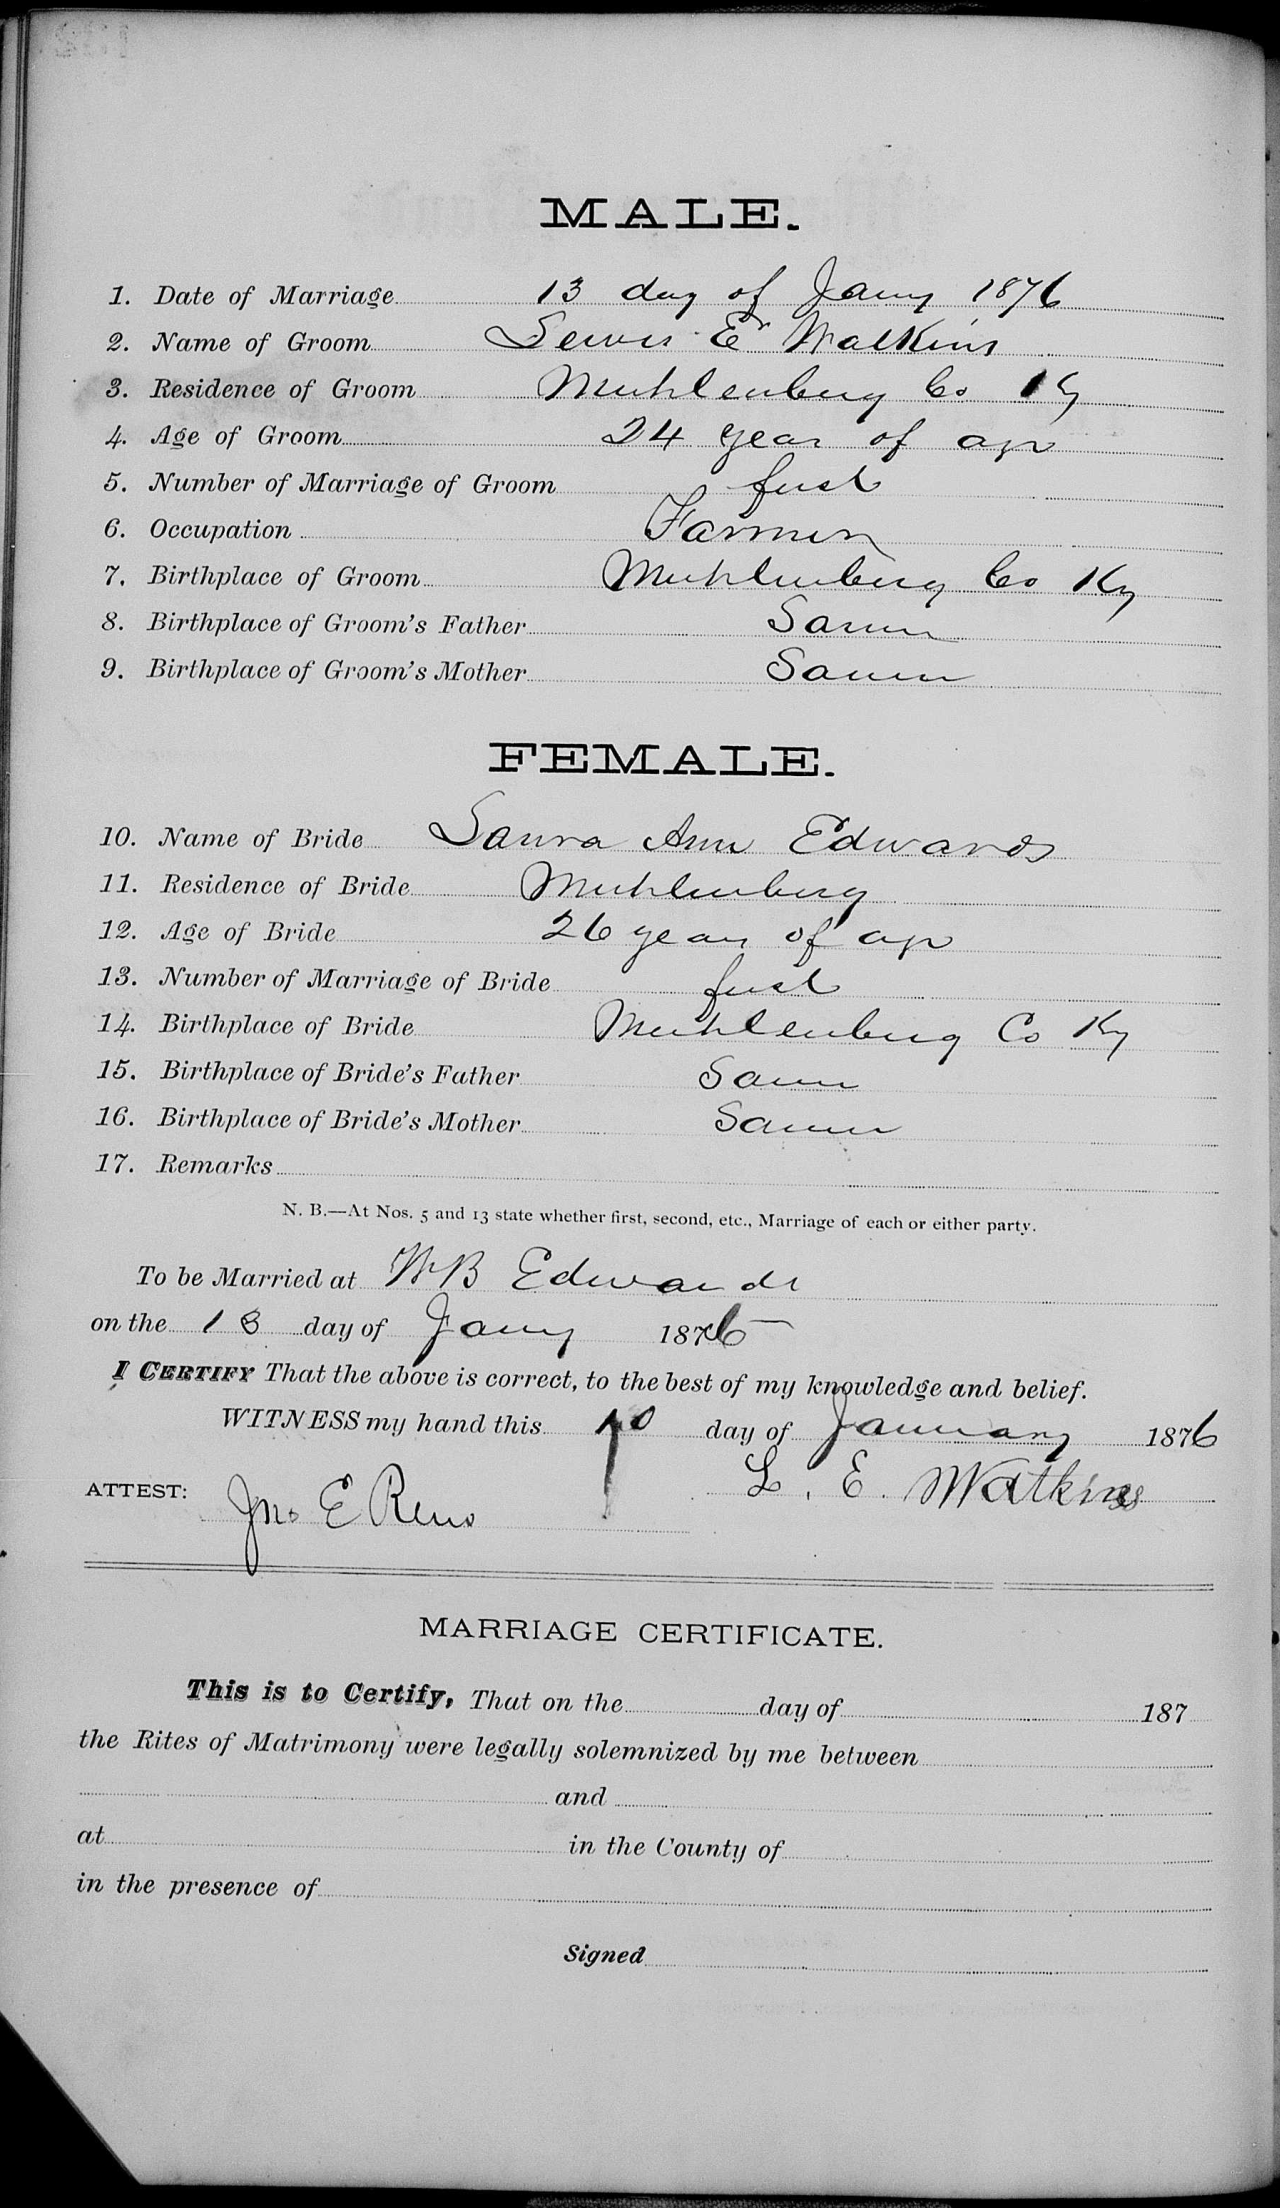 MALE.
1. Date of Marriage 13 day of Jany 1876
2. Name of Groom Lewis E Watkins
3. Residence of Groom Muhlenberg Co Ky
4. Age of Groom 24 year of age
5. Number of Marriage of Groom first
6. Occupation Farmer
7. Birthplace of Groom Muhlenberg Co Ky
8. Birthplace of Groom's Father Same
9. Birthplace of Groom's Mother Same
FEMALE.
10. Name of Bride Laura Ann Edwards
11. Residence of Bride Muhlenberg
12. Age of Bride 26 years of age
13. Number of Marriage of Bride first
14. Birthplace of Bride Muhlenberg Co Ky
15. Birthplace of Bride's Father Same
16. Birthplace of Bride's Mother Same
17. Remarks
N. B.—At Nos. 5 and 13 state whether first, second, etc., Marriage of each or either party.
To be Married at W B Edwards
on the 13 day of Jany 1876
I CERTIFY That the above is correct, to the best of my knowledge and belief.
WITNESS my hand this 10 day of January 1876
L. E. Watkins
ATTEST: Jno E Reno
MARRIAGE CERTIFICATE.
This is to Certify, That on the day of 187
the Rites of Matrimony were legally solemnized by me between
and
at in the County of
in the presence of
Signed